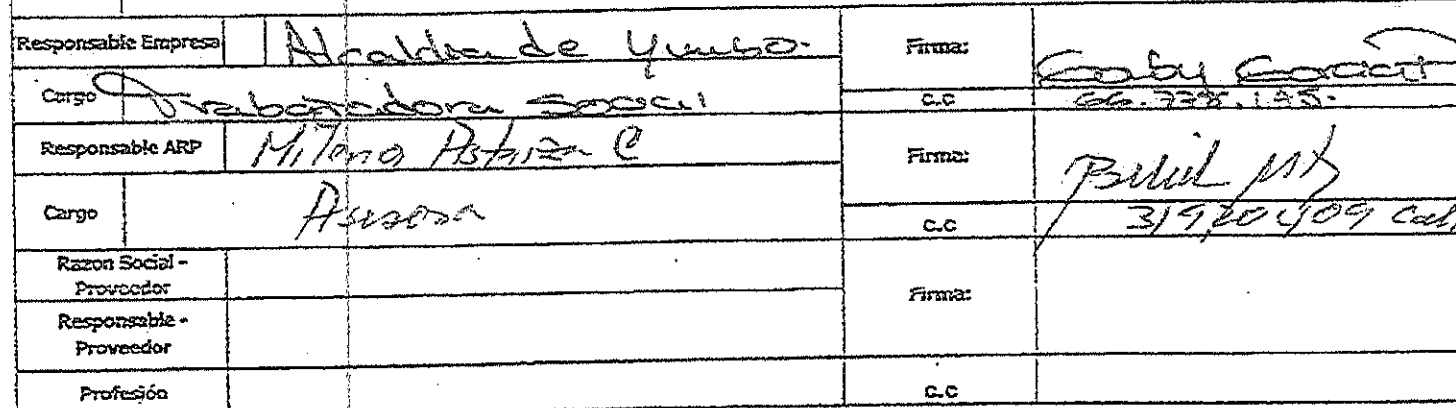 Responsable Empresa Alcaldia de Yumbo. Firma: Gaby
Cargo Trabajadora Social C.C
Responsable ARP Milena C Firma:
Cargo Asesora C.C
Razon Social -
Proveedor
Firma:
Responsable -
Proveedor
Profesión C.C